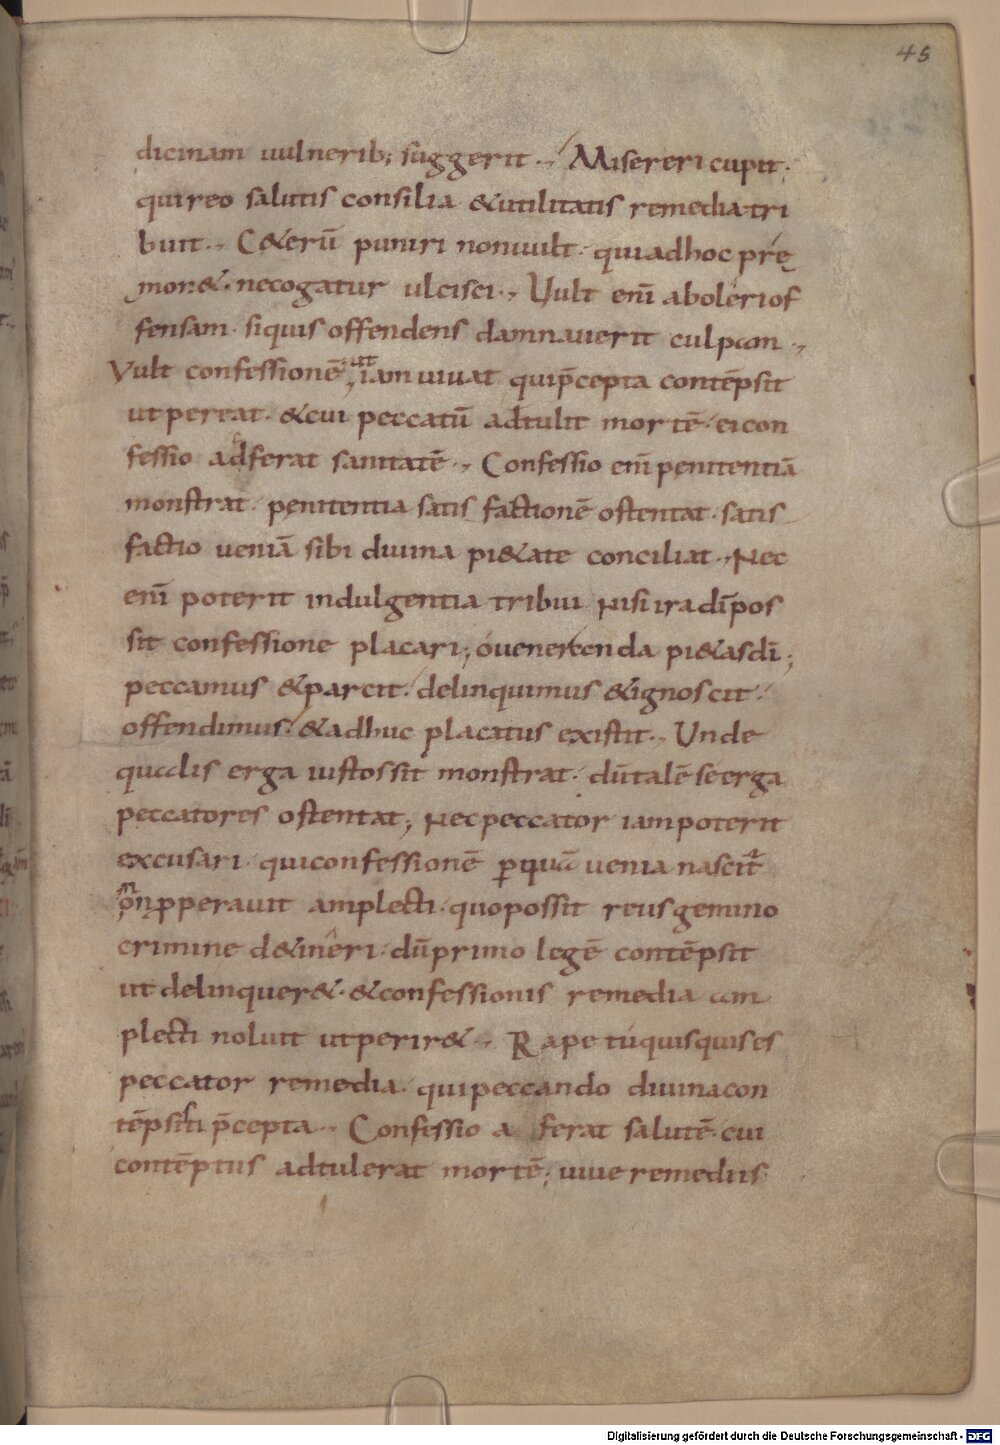 45
dicinam uulnerib; suggerit. Misereri cupit.
qui reo salutis consilia &utilitatis remedia tri
buit. C&erū puniri nonuult. quiadhoc prę
mon&. necogatur ulcisci. Uult enī aboleri of
fensam. siquis offendens damnauerit culpam.
Vult confessionē, ut iam uiuat qui p̄cepta contēpsit
ut pereat. &cui peccatū adtulit mortē. ei con
fessio adferat sanitatē. Confessio enī penitentiā
monstrat. penitentia satis factionē ostentat. satis
factio ueniā sibi diuina pi&ate conciliat. Nec
enī poterit indulgentia tribui Nisi ira dī pos
sit confessione placari; o uenerenda pi&as dī;
peccamus &parcit. delinquimus &ignoscit.
offendimus. &adhuc placatus existit. Unde
qualis erga iustos sit monstrat. dū talē se erga
peccatores ostentat; Nec peccator iam poterit
excusari. qui confessionē ꝑ quā uenia nascit᷑
non ꝓperauit amplecti. quo possit reus gemino
crimine d&ineri. dū primo legē contēpsit
ut delinquer&. &confessionis remedia am
plecti noluit ut perir&. Rape tu quisquis es
peccator remedia. qui peccando diuina con
tēpsisti p̄cepta. Confessio a ferat salutē. cui
contēptus adtulerat mortē; uiue remediis
Digitalisierung gefördert durch die Deutsche Forschungsgemeinschaft - DFG